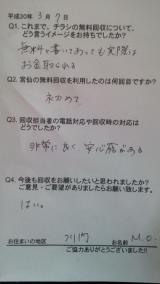 平成30年 3月 7日
Q1. これまで、チラシの無料回収について、
どう言うイメージをお持ちでしたか?
無料と書いてあっても実際は
お金取られる
Q2. 宮仙の無料回収を利用したのは何回目ですか?
初めて
Q3. 回収担当者の電話対応や回収時の対応は
どうでしたか?
非常に良く 安心感がある
Q4. 今後も回収をお願いしたいと思われましたか?
ご意見・ご要望がありましたらお願い致します。
はい。
お住まいの地区
お名前 M.O.
ご協力ありがとうございました!!